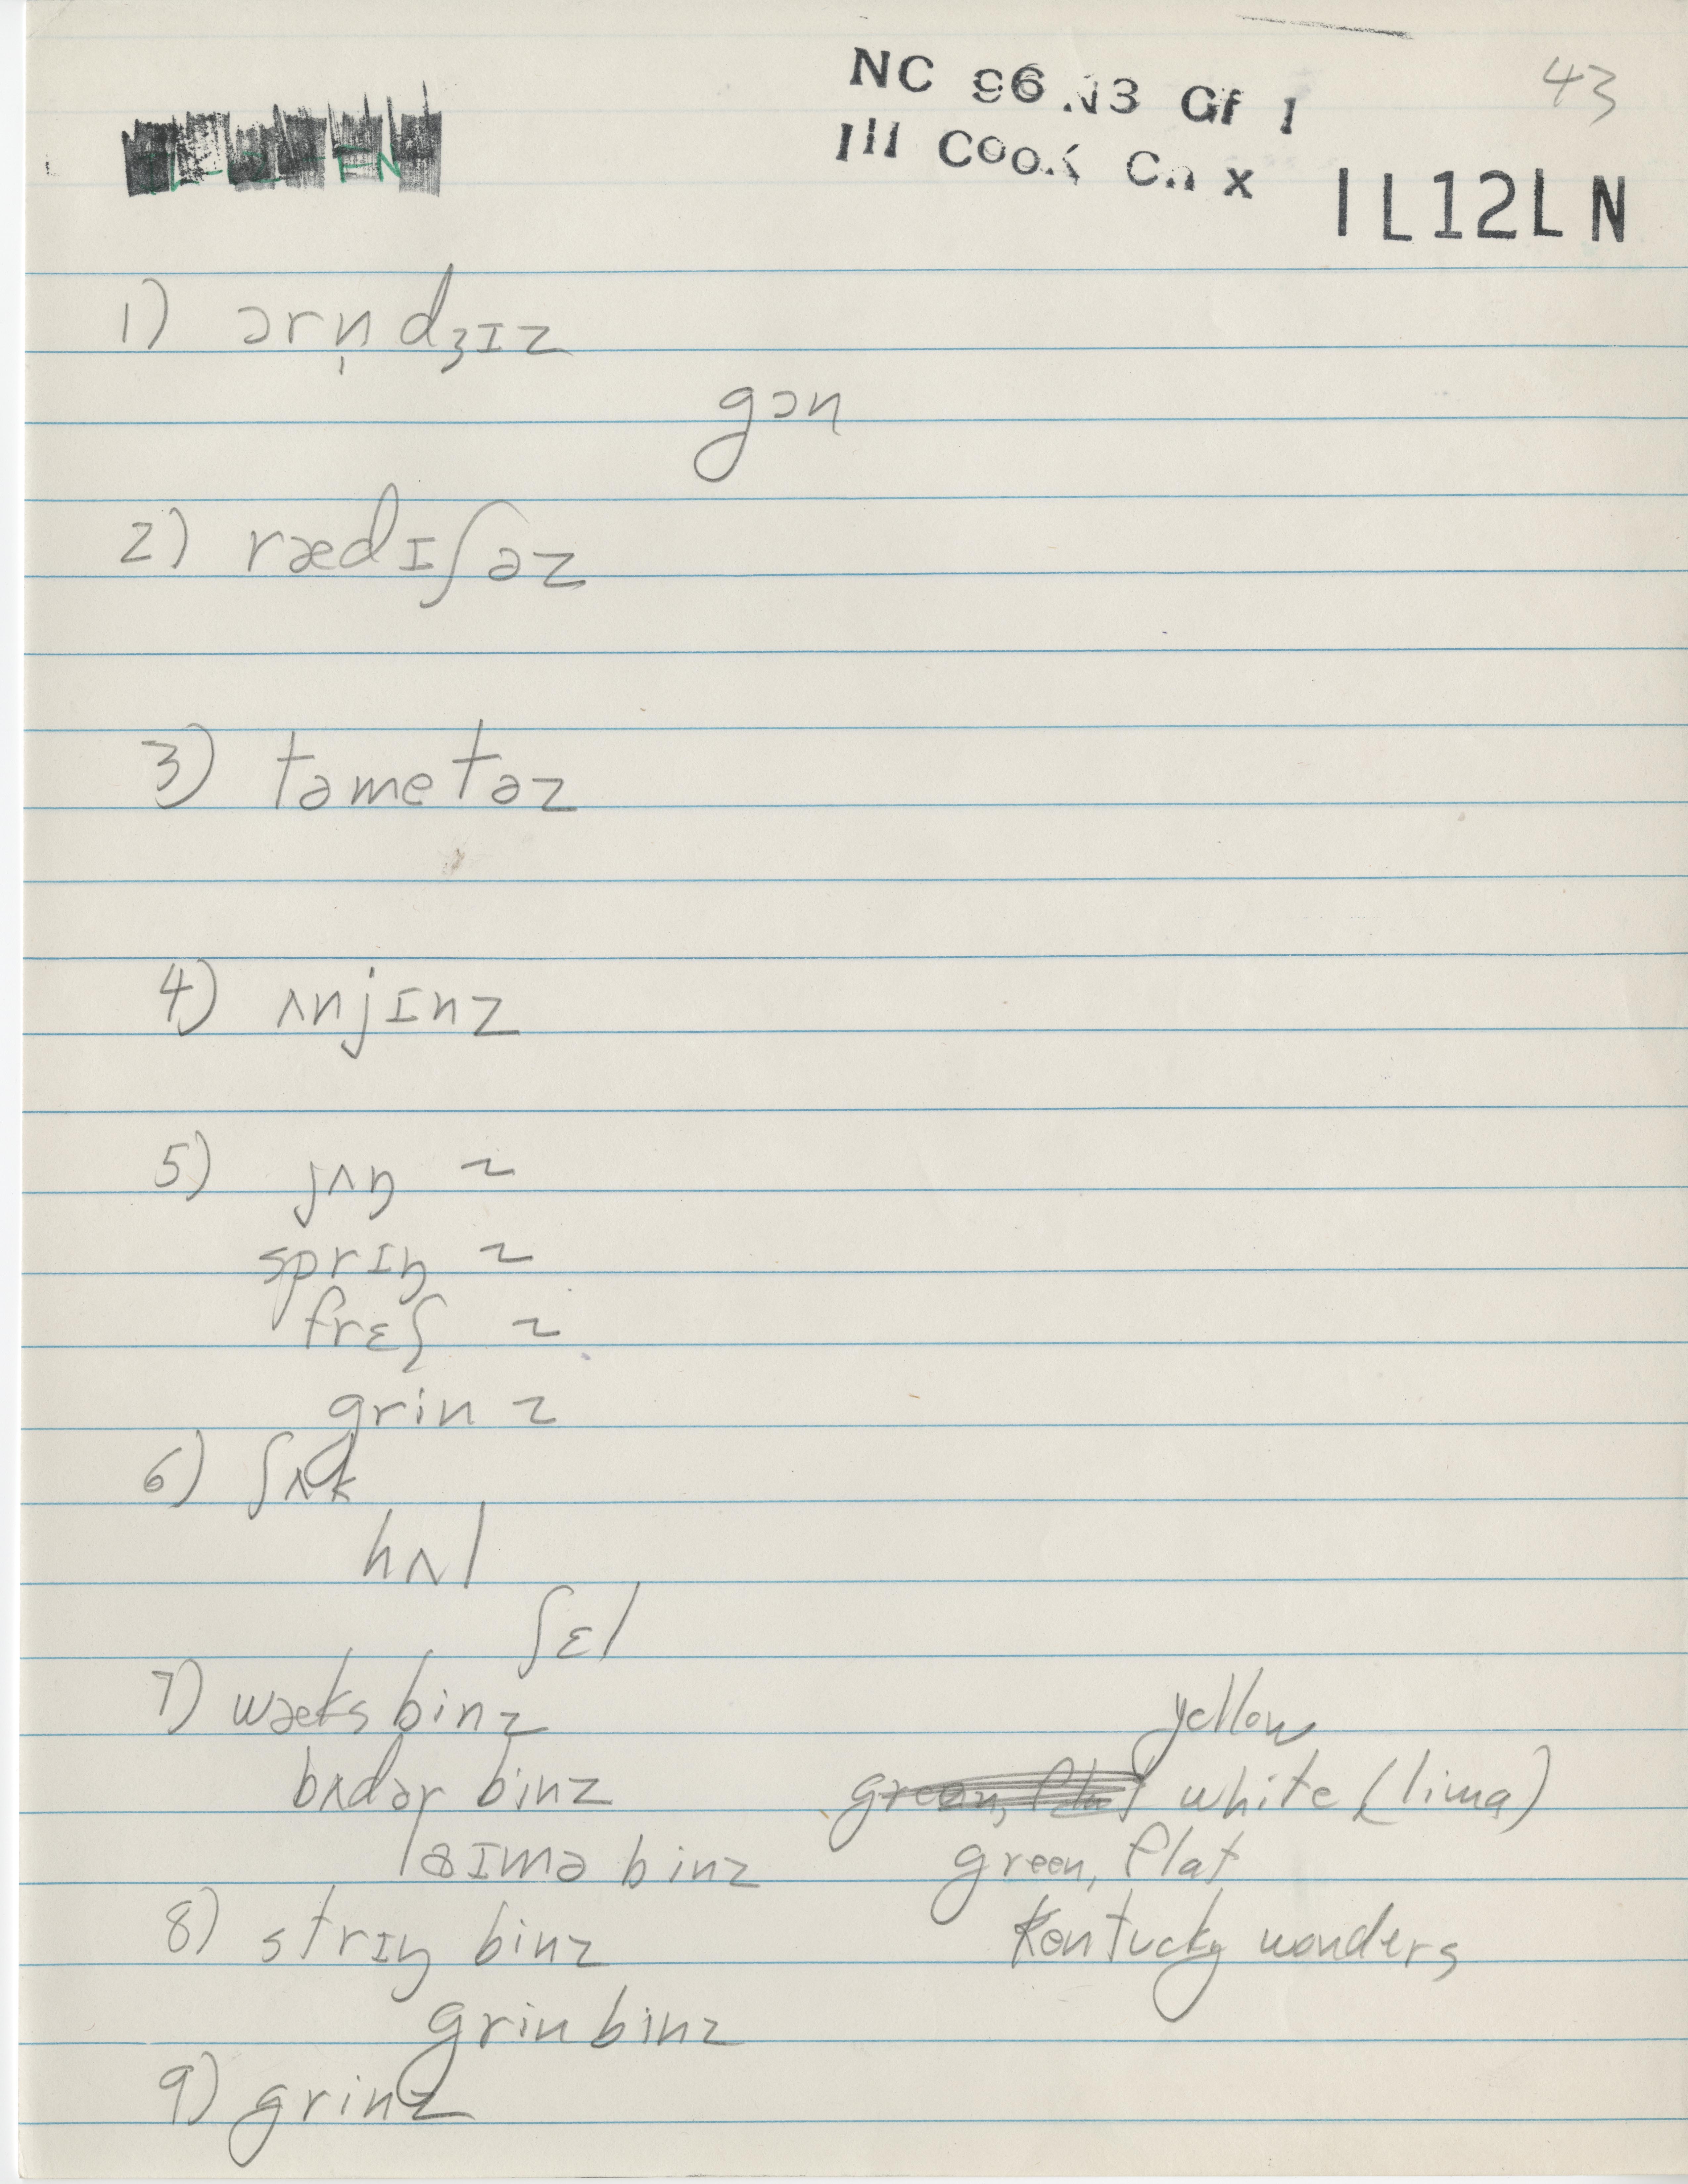 43
NC 96.N3 Gf 1
Ill Cook Ch x
IL12LN
1) ɔrn̩dʒɪz
gɔn
2) rædɪʃəz
3) təmetəz
4) ʌnjɪnz
5) jʌŋ ~
sprɪŋ ~
frɛʃ ~
grin ~
6) ʃʌk
hʌl
ʃɛl
7) wæks binz yellow
bʌdər binz white (lima)
laɪmə binz green, flat
8) strɪŋ binz Kentucky wonders
grin binz
9) grinz